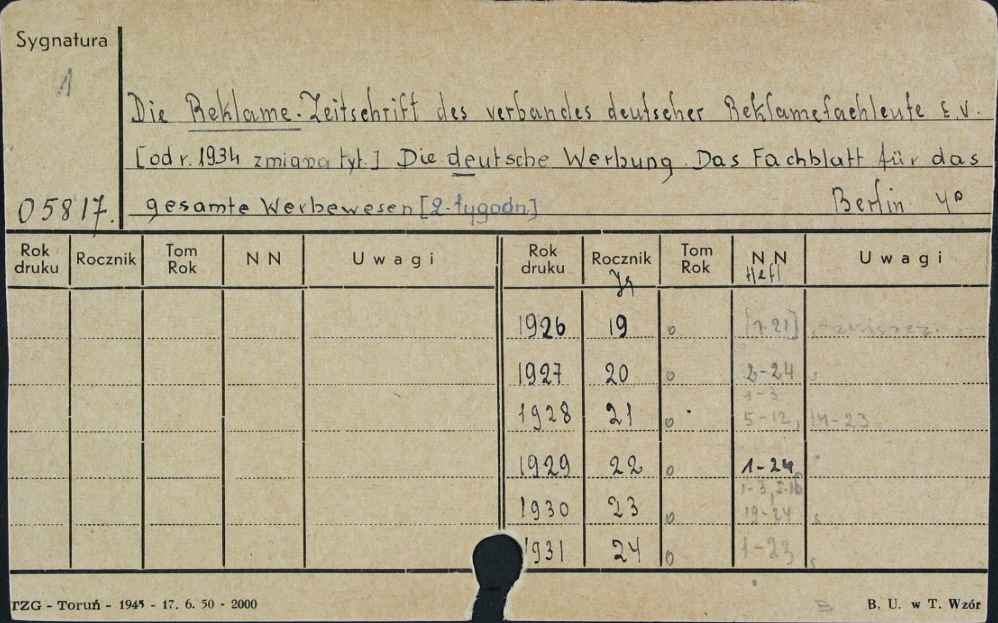 Sygnatura
1
Die Reklame. Zeitschrift des verbandes deutscher Reklamefachleute E.V.
[od r. 1934 zmiana tyt.] Die deutsche Werbung. Das Fachblatt für das
05817. gesamte Werbewesen [2-tygodn.] Berlin 4°
Rok druku Rocznik Tom Rok NN Uwagi Rok druku Rocznik Tom Rok NN Uwagi
Jg Heft
1926 19 [7-21]
1927 20 2-24
1-3
1928 21 5-12, 14-23
1929 22 1-24
1930 23 19-24
1931 24 1-23
TZG - Toruń - 1945 - 17. 6. 50 - 2000 B. U. w T. Wzór